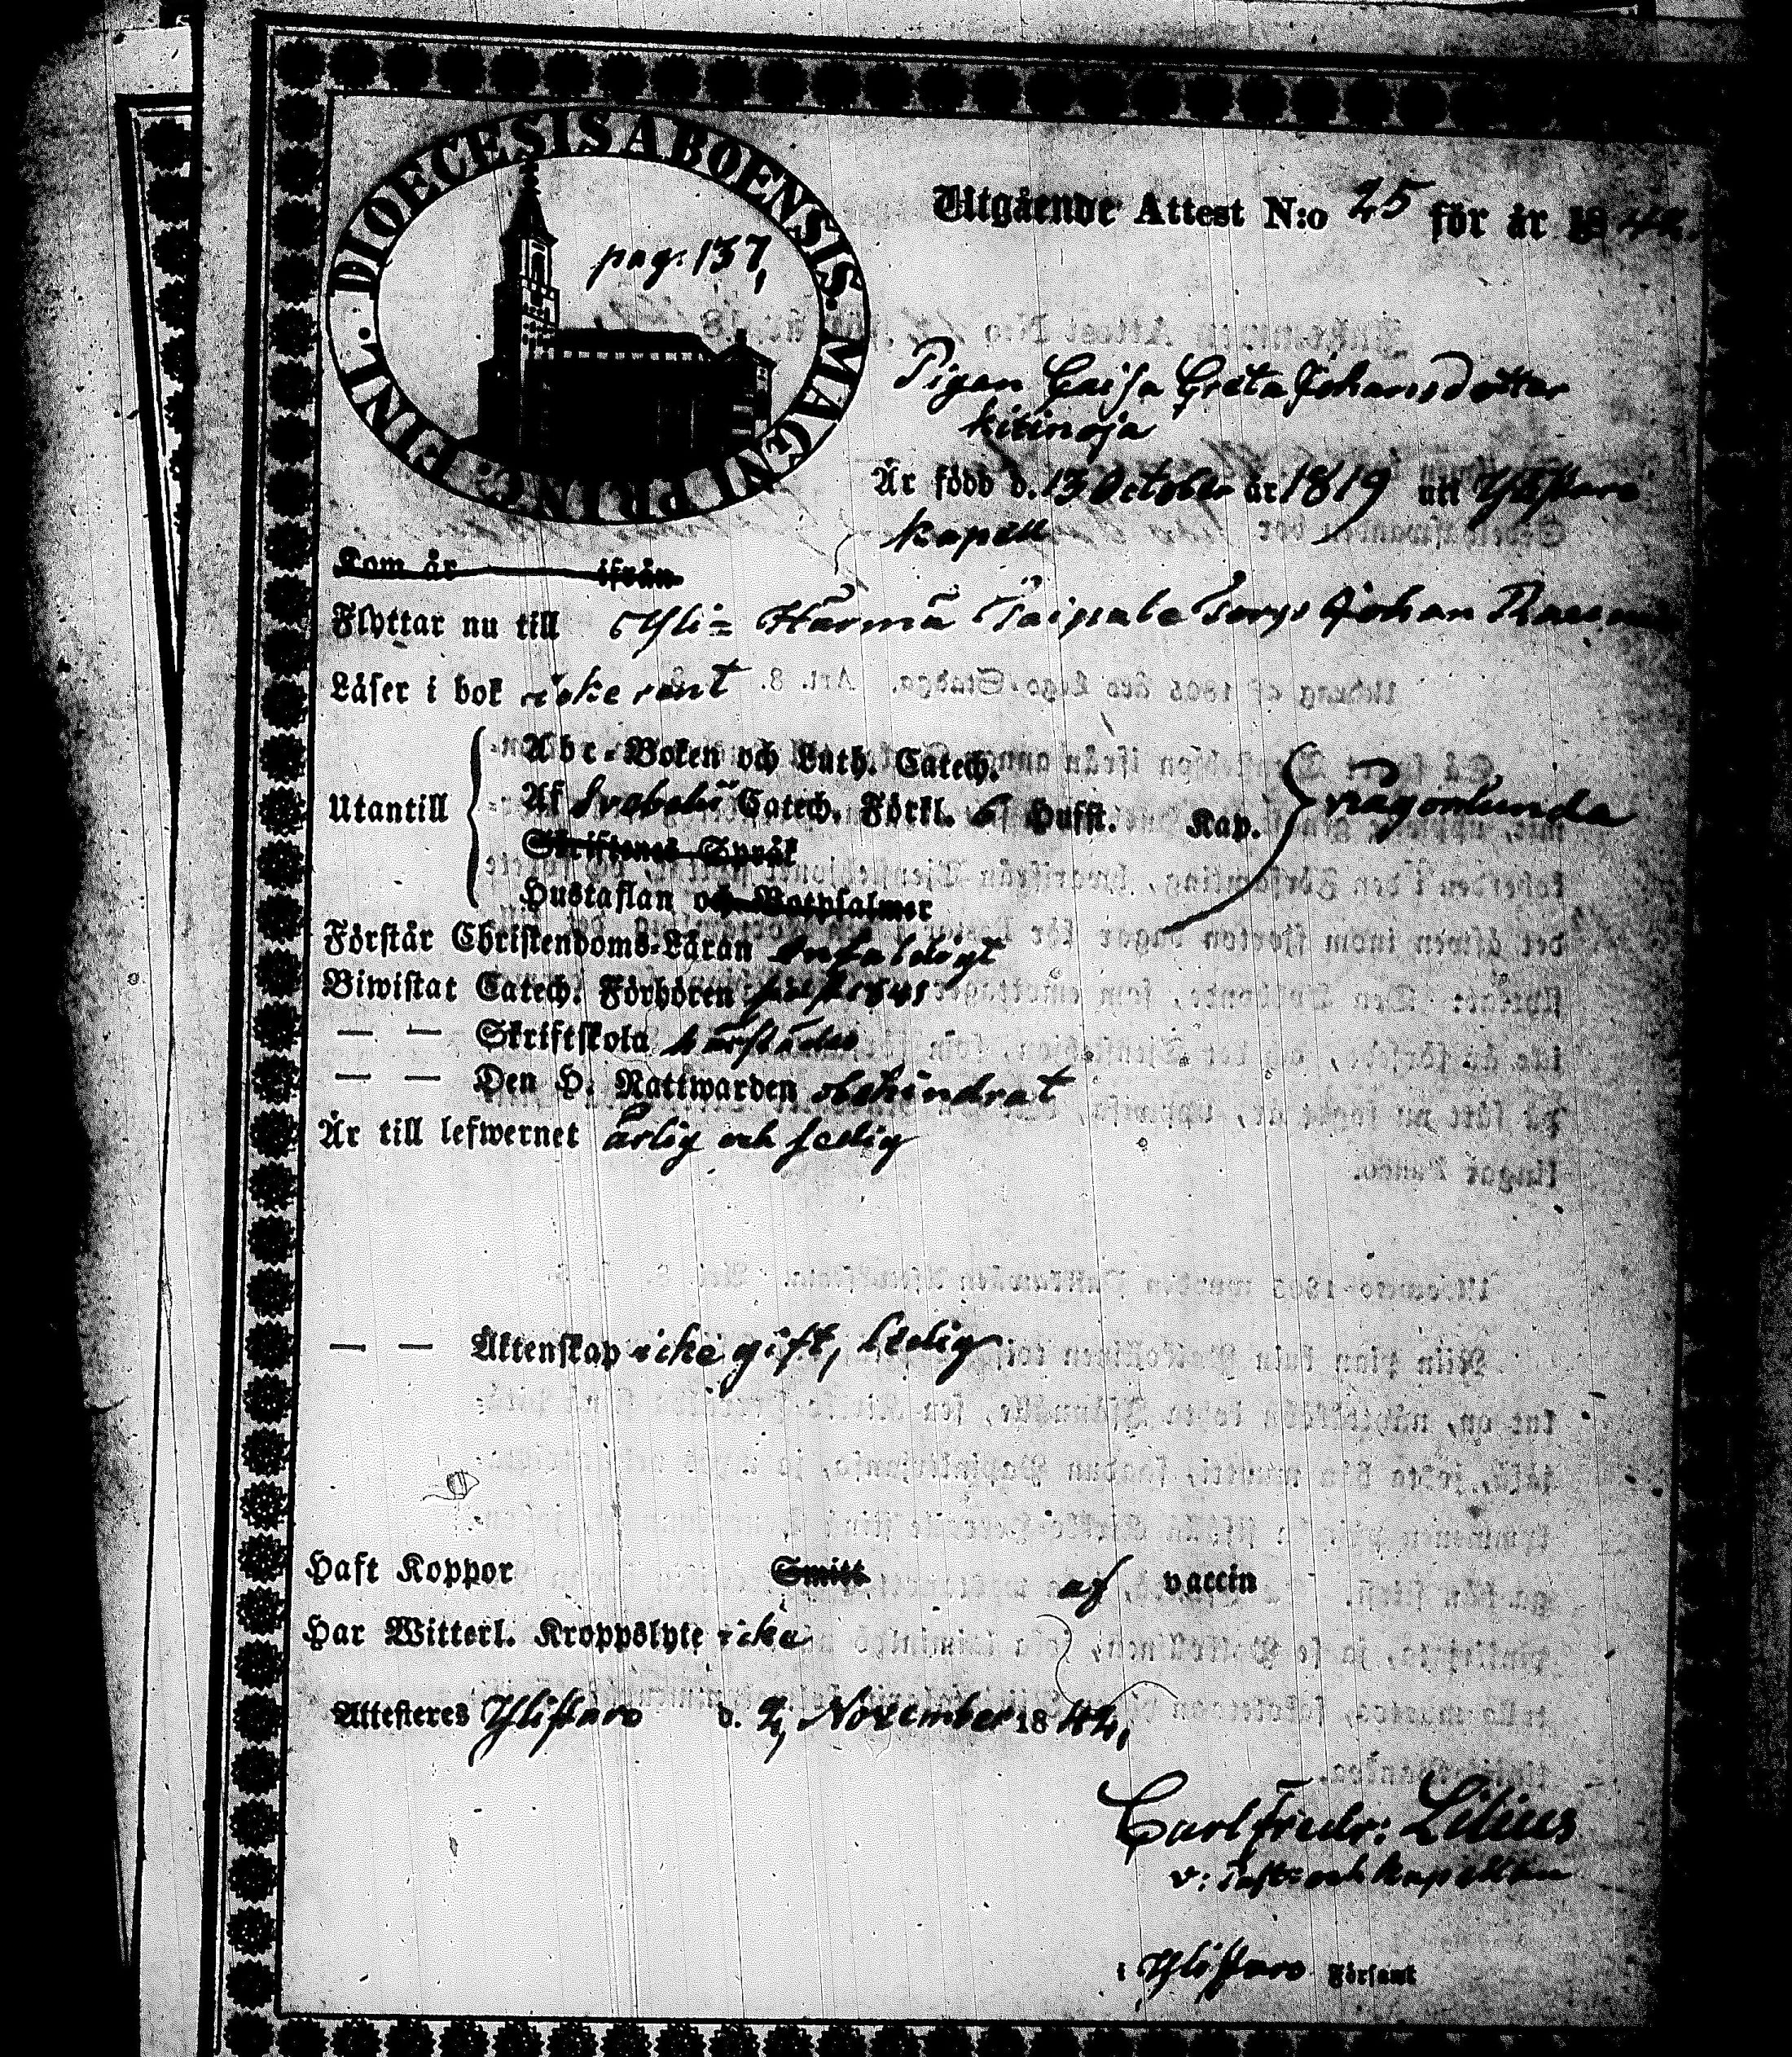 DIOECESIS ABOENSIS. MAGNI PRINC. FINL.
pag. 137,
Utgående Attest N:o 25 för år 1842.
Pigan Caisa Greta Johansdotter
Kitinoja
Är född d. 13 October år 1819 uti Ylistaro
Kapell
Kom år ifrån
Flyttar nu till Yli= Härmä Taipale Torp Johan
Läser i bok icke rent
Utantill
Abc-Boken och Luth. Catech.
Af Svebelii Catech. Förkl. 6 Hufst. Kap.
Skriftenes Språk
Hustaflan och Botpsalmer
Förstår Christendoms-Läran enfaldigt
Biwistat Catech. Förhören sist 1841
— — Skriftskola härstädes
— — Den H. Nattwarden obehindrat
Är till lefwernet ärlig och sedig
— — Äktenskap icke gift, ledig
Haft Koppor Smitt af vaccin
Har Witterl. Kroppslyte icke
Attesteres Ylistaro d. 2, November 1842,
Carl Fredr: Lilius
v: Past: och Kapellan
i Ylistaro Församl